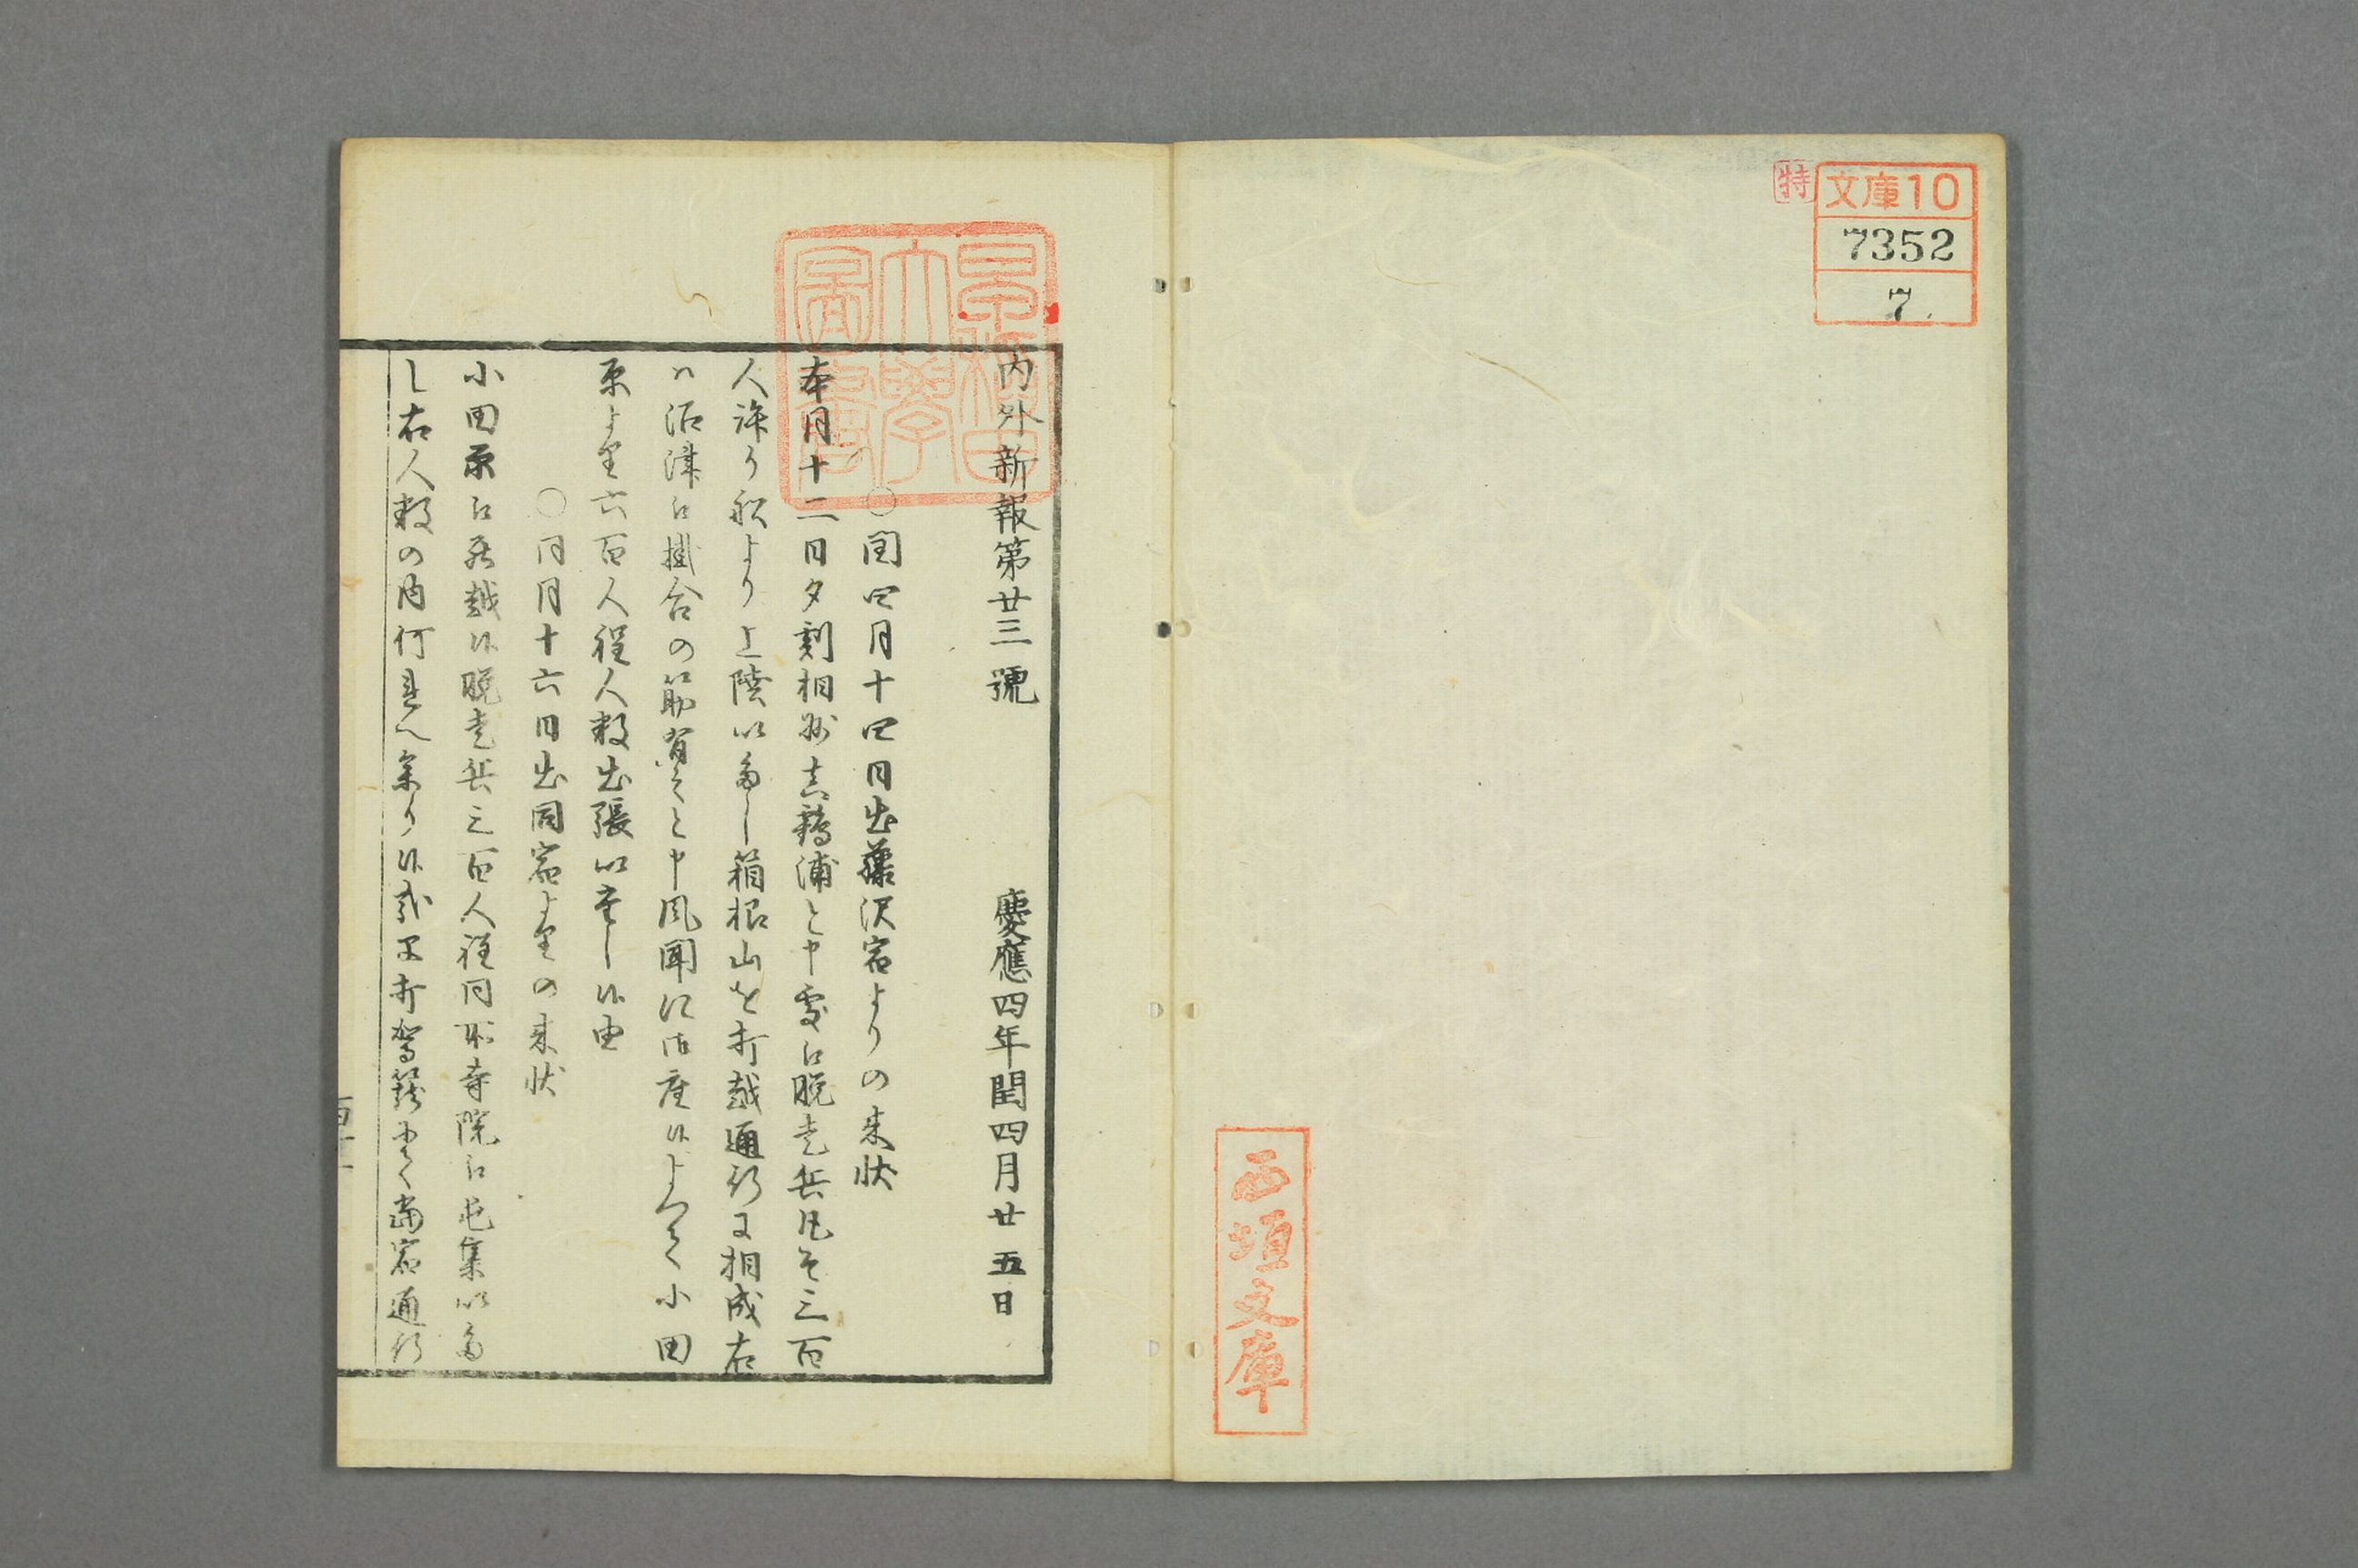 特
文庫10
7352
7
西垣文庫
早稲田大學圖書
内外新報第廿三號 慶應四年閏四月廿五日
○閏四月十四日出藤沢宿よりの来状
本月十二日夕刻相州真鶴浦と申處江脱走兵凡そ三百
人許り船より上陸いたし箱根山を打越通行に相成右
ハ沼津江掛合の筋有之と申風聞に御座候よつて小田
原より六百人程人数出張いたし候由
○同月十六日出同宿よりの来状
小田原江罷越候脱走兵三百人程同所寺院江屯集いた
し右人数の内何れへ参り候哉早打駕籠にて当宿通行